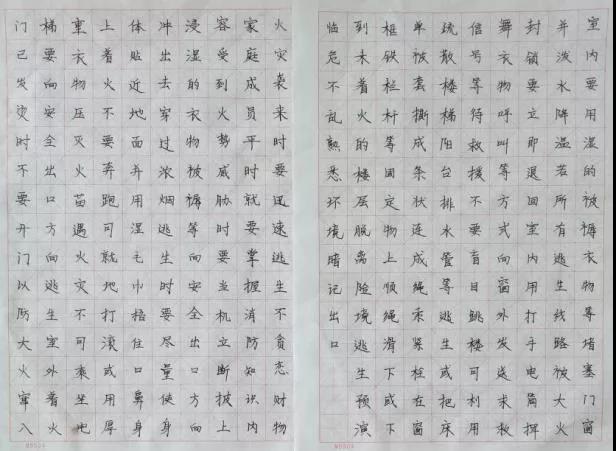 火灾袭来时要迅速逃生不贪恋财物
家庭成员平时就要掌握消防知识内
容受到火势威胁时要当机立断披上
浸湿的衣物被褥等向安全出口方向
冲出去穿过浓烟逃生时要尽量使身
体贴近地面并用湿毛巾捂住口鼻身
上着火不要弃跑可就地打滚或用厚
重衣物压灭火苗遇火灾不可乘坐电
梯要向安全出口方向逃生室外着火
门己发烫时不要开门以防大火窜入
室内要用湿的被褥衣物等堵塞门窗
并泼水降温若所有逃生线路被大火
封锁要立即退回室内用打手电筒挥
舞衣物呼叫等方式向窗外发送求救
信号等待救援不要盲目跳楼可利用
疏散楼梯阳台排水管等逃生或把床
单被套撕成条状连成绳索紧拴在窗
框铁栏杆等固定物上顺绳滑下或下
到未着火的楼层脱离险境逃生预演
临危不乱熟悉环境暗记出口